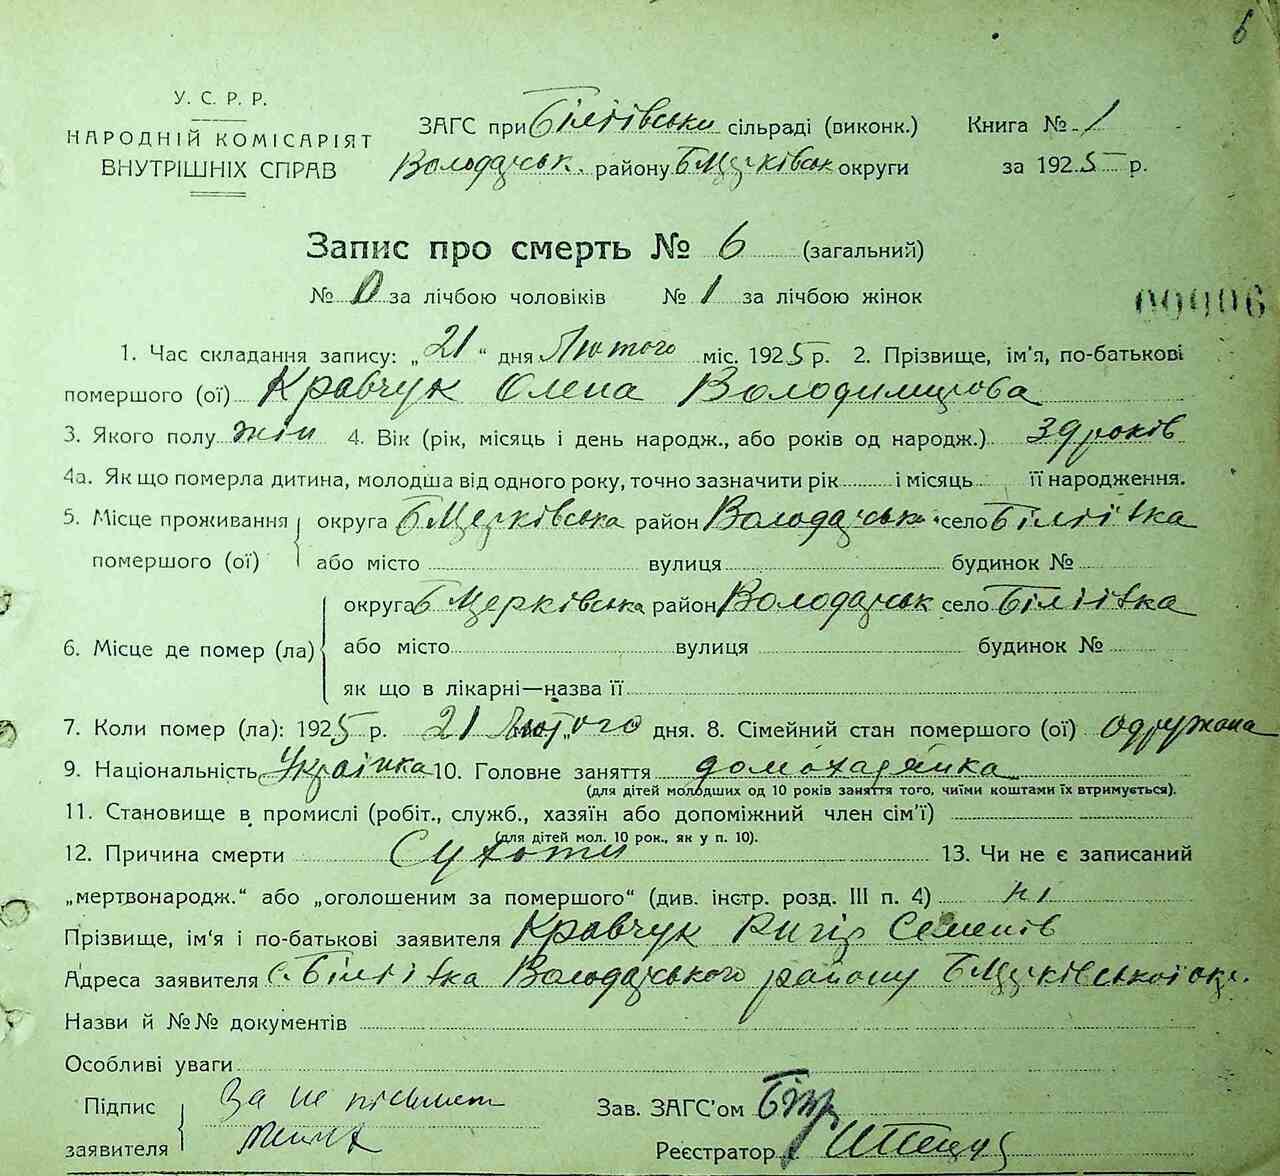 6
У. С. Р. Р.
НАРОДНІЙ КОМІСАРІЯТ
ВНУТРІШНІХ СПРАВ
ЗАГС при Біліївськи сільраді (виконк.) Книга № 1
Володарськ. району БЦерківськ округи за 1925 р.
Запис про смерть № 6 (загальний)
№ 0 за лічбою чоловіків № 1 за лічбою жінок
00006
1. Час складання запису: „21“ дня Лютого міс. 1925 р. 2. Прізвище, ім'я, по-батькові
помершого (ої) Кравчук Олена Володимирова
3. Якого полу жін 4. Вік (рік, місяць і день народж., або років од народж.) 39 років
4а. Як що померла дитина, молодша від одного року, точно зазначити рік і місяць її народження.
5. Місце проживання округа БЦерківська район Володарськ село Біліївка
помершого (ої) або місто вулиця будинок №
округа БЦерківська район Володарськ село Біліївка
6. Місце де помер (ла) або місто вулиця будинок №
як що в лікарні—назва її
7. Коли помер (ла): 1925 р. 21 Лютого дня. 8. Сімейний стан помершого (ої) одружона
9. Національність Українка 10. Головне заняття домохазяйка
(для дітей молодших од 10 років заняття того, чиїми коштами їх втримується).
11. Становище в промислі (робіт., служб., хазяїн або допоміжний член сім'ї)
(для дітей мол. 10 рок., як у п. 10).
12. Причина смерти Сухоти 13. Чи не є записаний
„мертвонародж.“ або „оголошеним за помершого“ (див. інстр. розд. III п. 4) ні
Прізвище, ім'я і по-батькові заявителя Кравчук Семенів
Адреса заявителя с. Біліївка Володарського району БЦерківської окр.
Назви й №№ документів
Особливі уваги
Підпис За не письмен
заявителя
Зав. ЗАГС'ом
Реєстратор